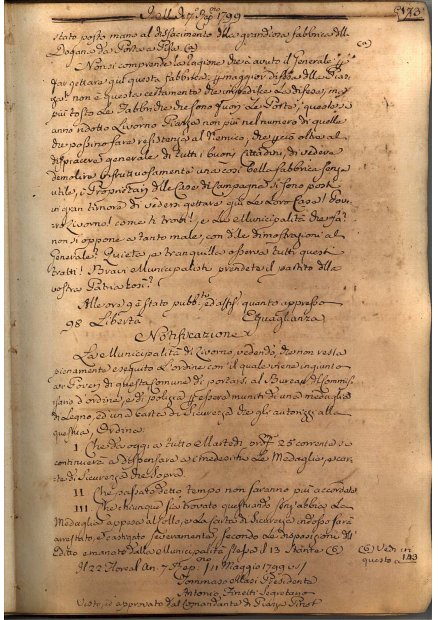 1799
173
stato posto mano al disfacimento della grandiosa fabbrica della
Dogana da Porta a Pisa (a)
(a)
Non si comprende la cagione che à avuto il Generale p.
far gettare qui questa fabbrica. p. maggior difesa della Piaz-
za? non è questa certamente che impedisce la difesa, ma
più tosto le Fabbriche che sono fuori le Porte, queste s'
anno ridotto Livorno Piazza non più nel numero di quelle
che possino fare resistenza al Nemico, che perciò oltre al
dispiacere generale di tutti i buoni Cittadini, di vedere
demolire infruttuosamente una così bella fabbrica senza
utile, i Proprietarj delle Case di Campagna si sono posti
in gran timore di vedersi gettare giù le Loro Case! Pove-
ro Livorno! come ti trovi!, e la Municipalità che fà?
non si oppone a tanto male, con delle dimostrazioni al
Generale? Quieta, e tranquilla osserva tutti questi
tratti! Bravi Municipalisti prendete il partito della
vostra Patria
Alle ore 9 è stato pubb.to ed affisso quanto appresso
98 Libertà Eguaglianza
Notificazione
La Municipalità di Livorno, vedendo, che non resta
pienamente eseguito l'ordine con il quale viene ingiunto
ai Poveri di questa Comune di portarsi al Bureau del Commis-
sario d'ordine, e di polizia p. essere muniti di una medaglia
di Legno, ed una Carta di Sicurezza che gli autorizzi alla
questua, Ordina.
I Che da oggi a tutto Martedì 25 corrente si
continuerà a dispensare a' medesimi Le Medaglie, e car-
te di Sicurezza che sopra.
II Che passato detto tempo non saranno più accordate
III Che chiunque sia trovato questuando senz'abbia La
Medaglia appesa al Collo, e La Carta di Sicurezza indosso sarà
arrestato, e castigato severamente, secondo le disposizioni dell'
Editto emanato dalla Municipalità stessa il 13 Stante (b)
(b) Vedi in
questo a 143
Il 22 Floreal An. 7 Rep.no 11 Maggio 1799 v.s.
Tommaso Masi Presidente
Antonio Segretario
Visto, ed approvato dal Comandante di Piazza